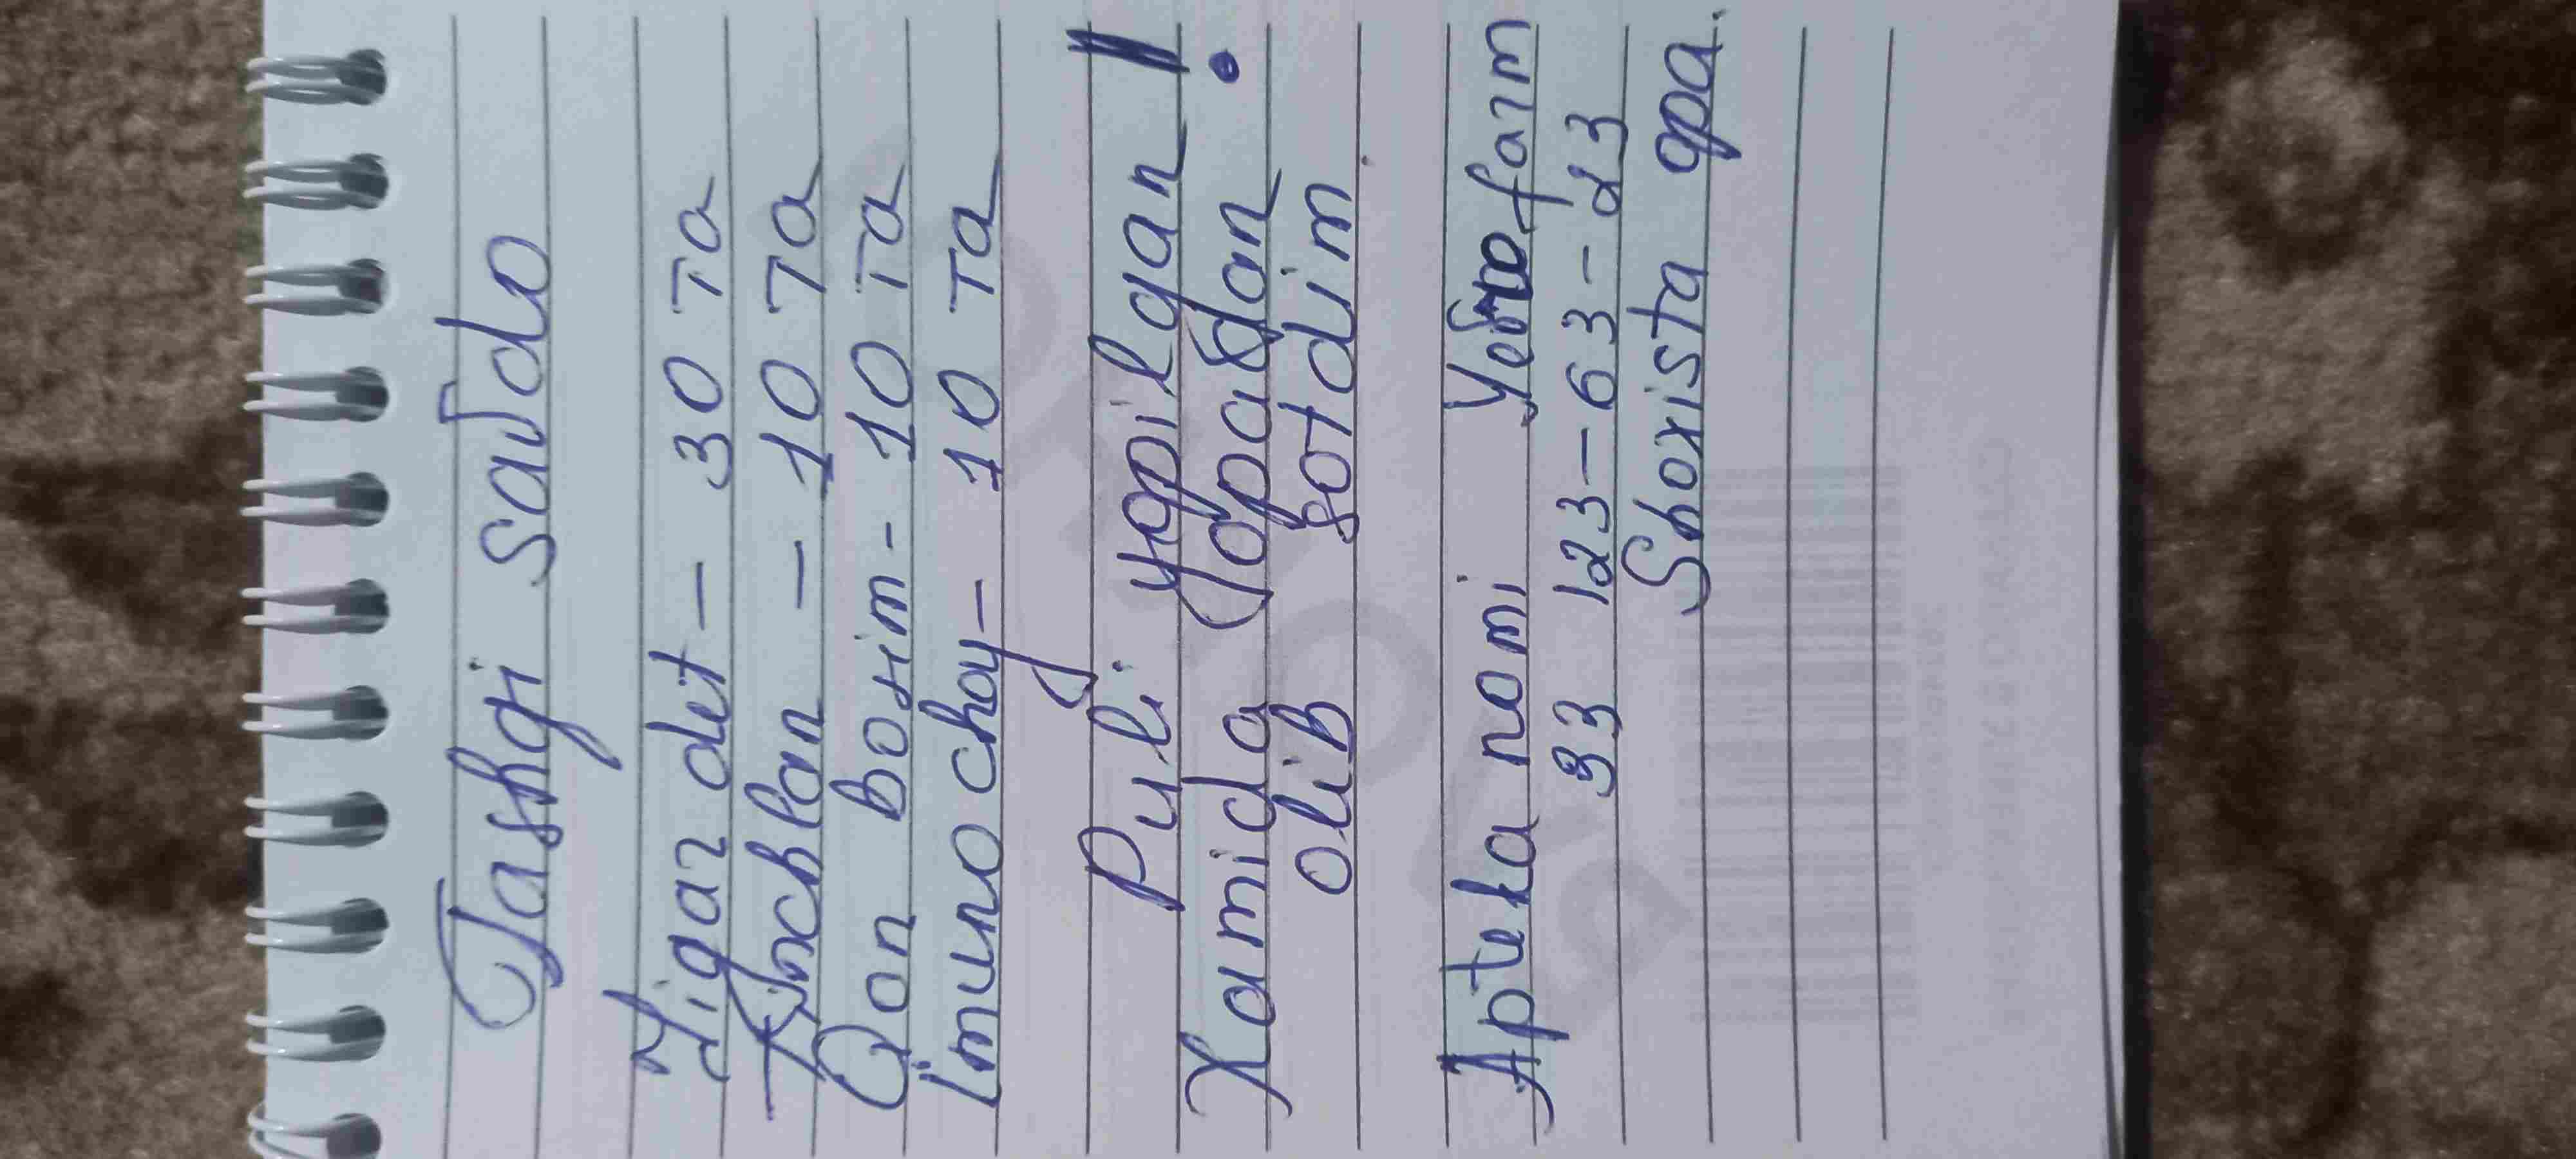 Tashgi savdo
Jigar det - 30 та
Tinchlan - 10 та
Qon bosim - 10 та
imuno choy - 10 та
Puli yopilgan!
Xamida opadan
olib sotdim
Apteka nomi Yevrofarm
33 123-63-23
Shoxista opa.